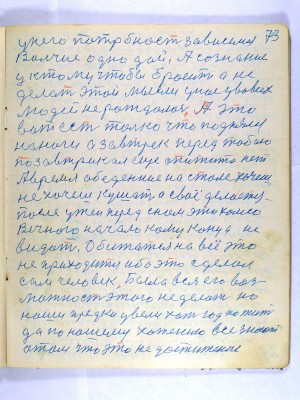 у него потребност зависемая 73
Вличие одно дай, А сознание
у к тому чтобы бросит а не
делат этой мысли у
людей не рождалос, А это
вот ест толко что поднялся
на ноги а завтрак перед тобою
позавтракал еще аппетита нет
А время обеденне на столе хочеш
не хочеш кушат а своё делаеш,
после ужен перед сном это колесо
Вечного начало кому конца не
видат. Обижатся на всё это
не приходится ибо это сделал
сам человек, Была вся его воз-
можност этого не делат но
наши предки увели
да по нашему хотению все знают
о том что это не достижение